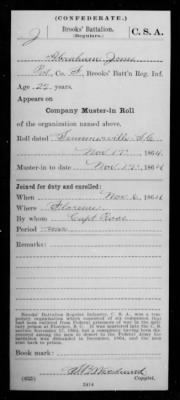 (CONFEDERATE.)
J Brooks' Battalion. C. S. A.
(Regulars.)
Abraham Jones
Pvt, Co. A, Brooks' Batt'n Reg. Inf.
Age 22 years.
Appears on
Company Muster-in Roll
of the organization named above.
Roll dated Summerville S.C.
Nov 17, 1864
Muster-in to date Nov 17, 1864
Joined for duty and enrolled:
When Nov 6, 1864
Where Florence
By whom Capt Rose
Period war
Remarks:
Brooks' Battalion Regular Infantry, C. S. A. was a temporary organization which consisted of six companies that had been enlisted from Federal prisoners of war in the military prison at Florence, S. C. It was mustered into the C. S. service November, 1864, but a conspiracy having been formed among the men to desert to the Federal Army the battalion was disbanded in December, 1864, and the men sent back to prison.
Book mark:
(635)
Copyist.